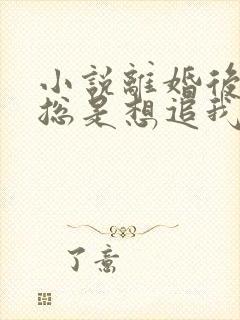 小說離婚後
總是想追我
了意